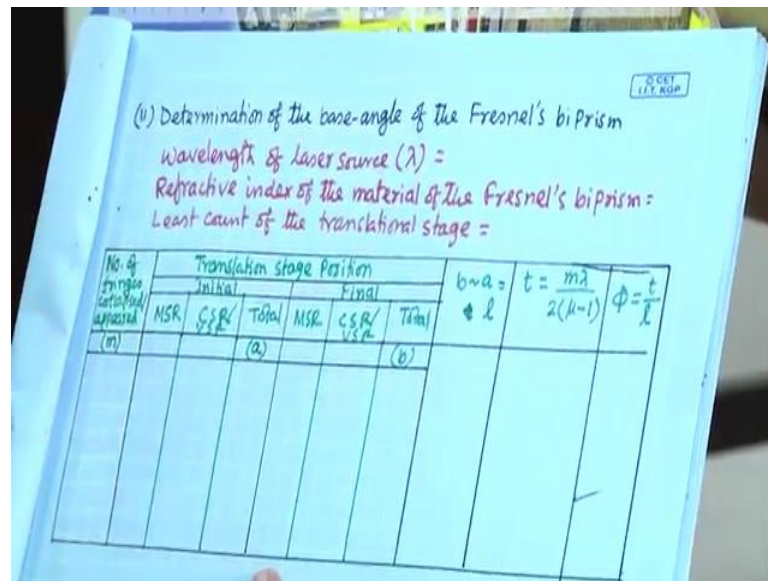 © CET
I.I.T. KGP
(ii) Determination of the base-angle of the Fresnel's biprism
Wavelength of Laser source (λ) =
Refractive index of the material of the Fresnel's biprism =
Least count of the translational stage =
No. of fringes collapsed/appeared (m)
Translation stage Position
Initial
Final
MSR
CSR/VSR
Total (a)
MSR
CSR/VSR
Total (b)
b~a = l
t = mλ / 2(μ-1)
Φ = t / l